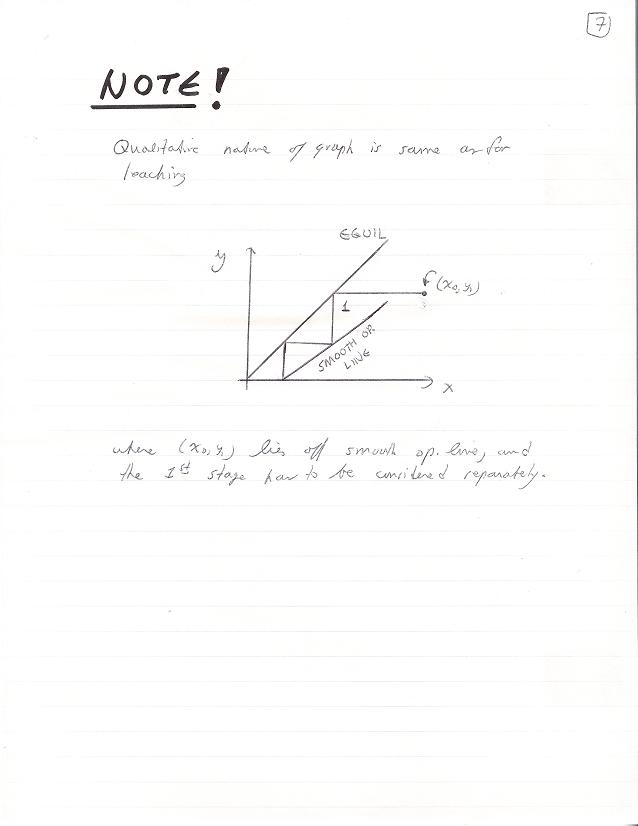 7
NOTE!
Qualitative nature of graph is same as for
leaching
EQUIL
y
(x₀, y₁)
1
SMOOTH OP
LINE
x
where (x₀, y₁) lies off smooth op. line, and
the 1st stage has to be considered separately.